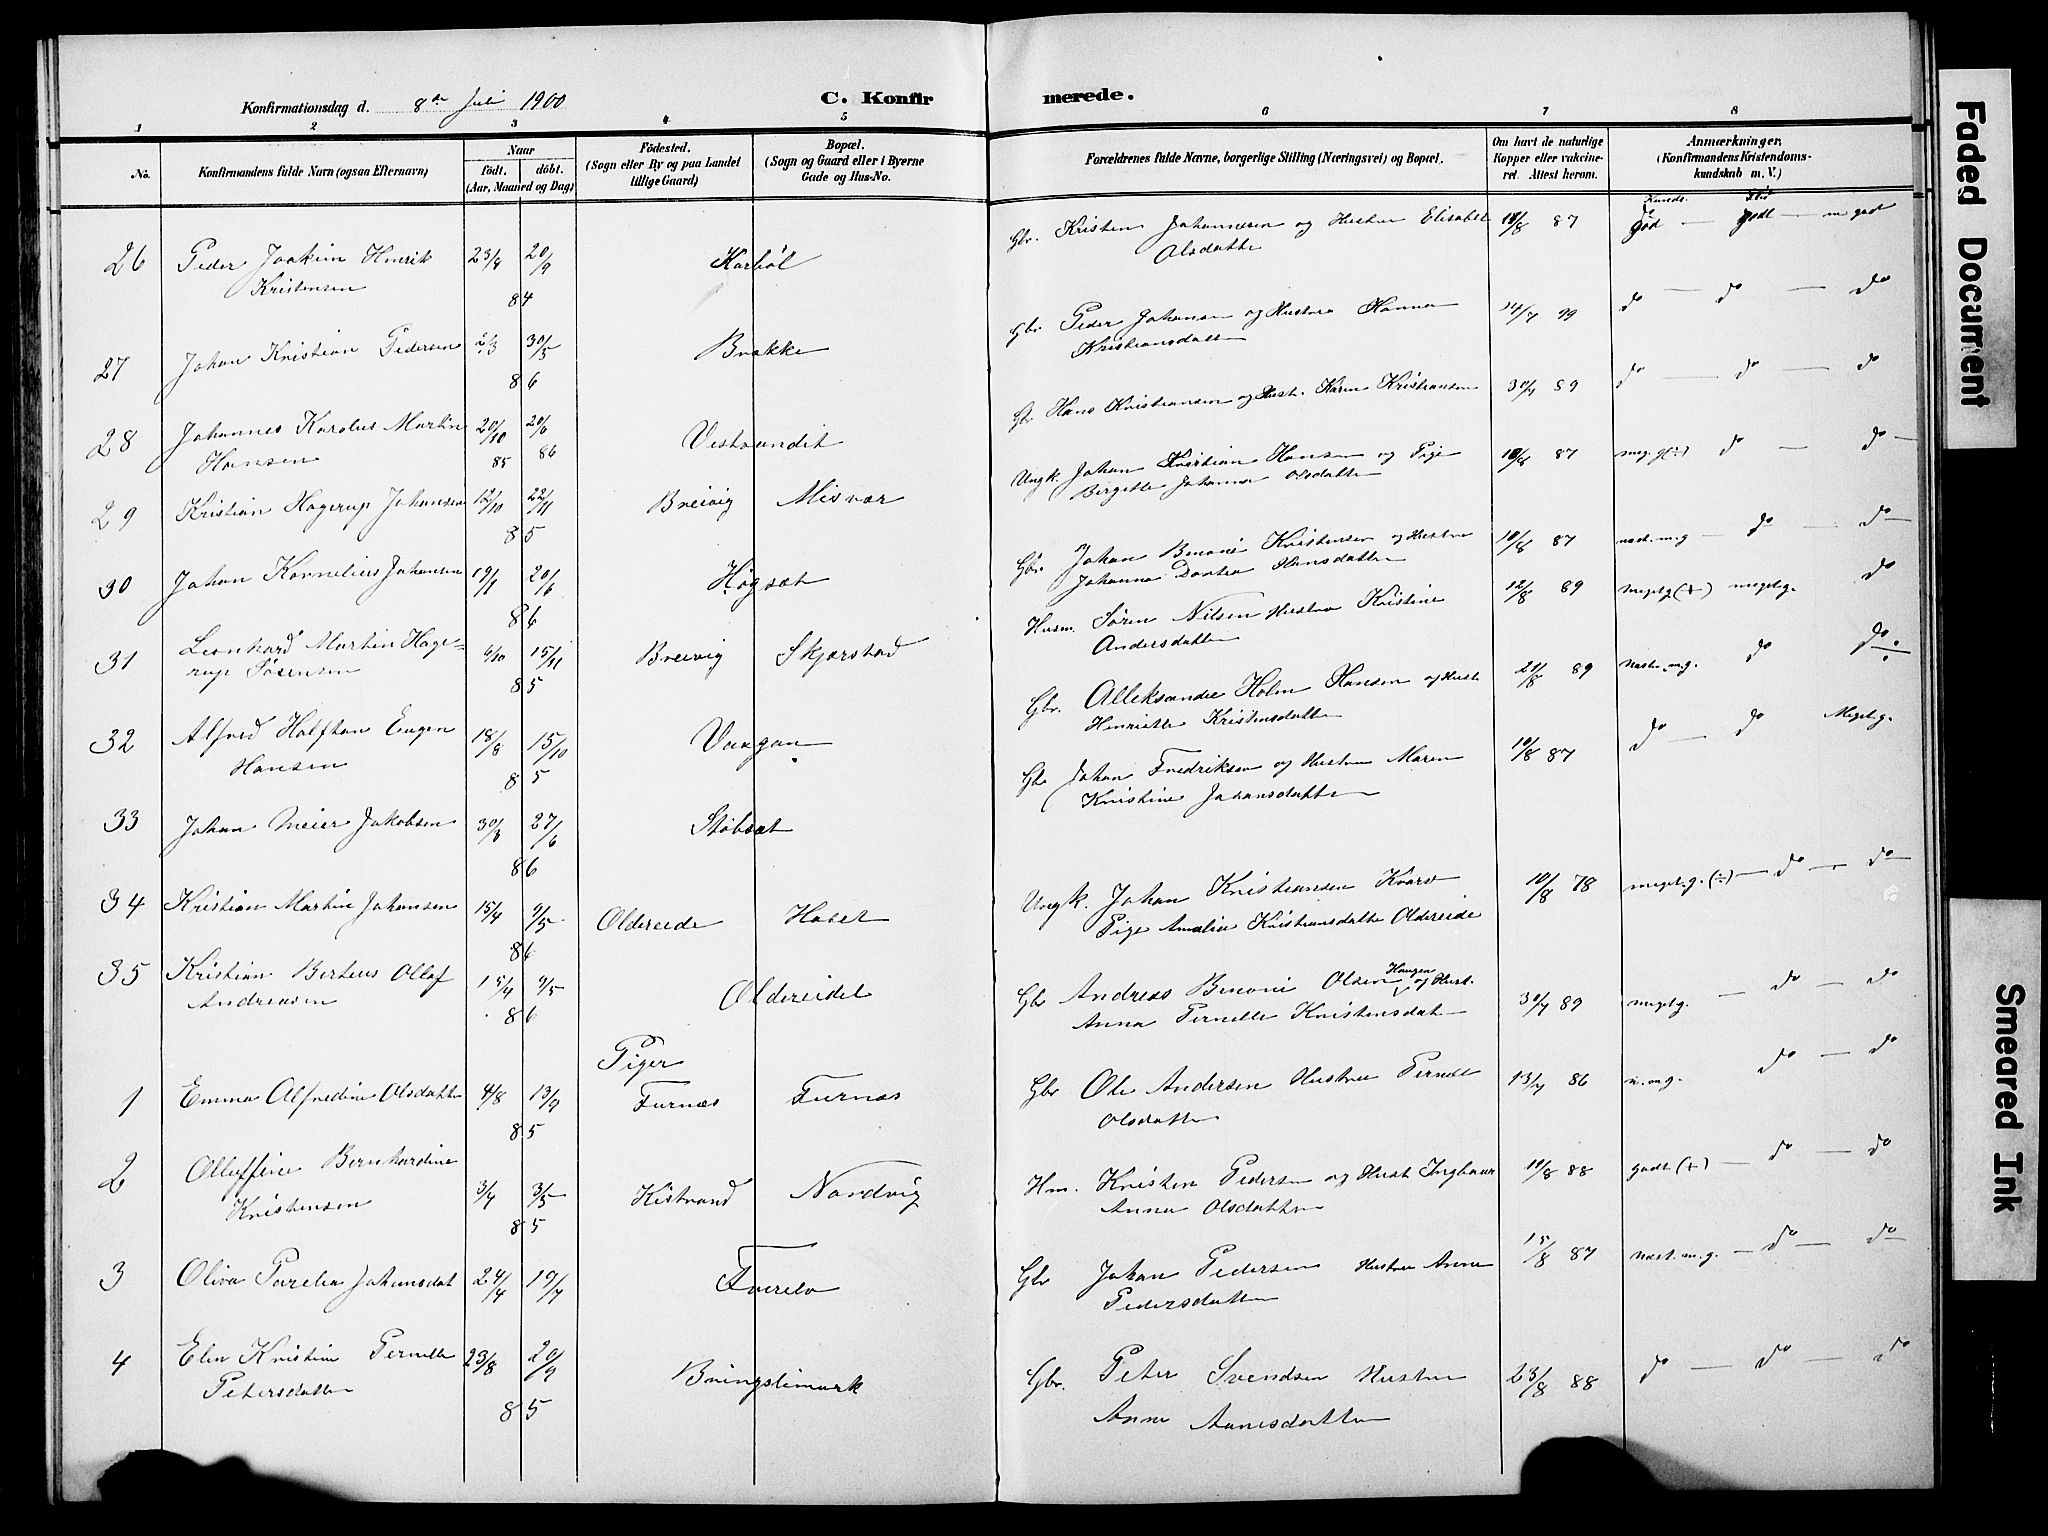 Konfirmationsdag d. 8de Juli 1900
C. Konfirmerede.
1 2 3 4 5 6 7 8
No.
Konfirmandens fulde Navn (ogsaa Efternavn)
Naar
født. døbt.
(Aar, Maaned og Dag)
Fødested.
(Sogn eller By og paa Landet
tillige Gaard)
Bopæl.
(Sogn og Gaard eller i Byerne
Gade og Hus-No.
Forældrenes fulde Navne, borgerlige Stilling (Næringsvei) og Bopæl.
Om havt de naturlige
Kopper eller vakcine-
ret. Attest herom.
Anmærkninger.
(Konfirmandens Kristendoms-
kundskab m. V.)
26 Peder Joakim Henrik 23/8 20/9 Karbøl Gbr. Kristen Johannesen og Hustru Elisabet 87 god godt m. god
Kristensen 84 Olsdatter
27 Johan Kristian Pedersen 2/3 30/5 Brække Gbr Peder Johansen og Hustru Hanna 14/7 99 do do do
86 Kristiansdatter
28 Johannes Karolus Martin 20/10 20/6 Vestvandet Gbr Hans Kristiansen og Hust. Karen Kristiansen 30/7 89 do do do
Hansen 85 86
29 Kristian Hagerup Johansen 12/10 22/11 Breivig Misvær Ungk. Johan Kristian Hansen og Pige 10/8 87 do do
85 Birgitte Johanna Olsdatter
30 Johan Kornelius Johansen 19/1 20/6 Høgsæt Gbr. Johan Benoni Kristensen og Hustru 10/8 87 næst. m.g do do
86 Johanna Dortea Hansdatter
31 Leonhard Martin Hage- 6/10 15/11 Breivig Skjerstad Husm. Søren Nilsen Hustru Kristine 12/8 89 megetg (+) megetg. do
rup Sørensen 85 Andersdatter
32 Alfred Halftan Eugen 18/8 15/10 Vaagan Gbr. Alleksander Holm Hansen og Hust 21/8 89 næst. m.g. do do
Hansen 85 Henriette Kristensdatter
33 Johan Meier Jakobsen 30/3 27/6 Støbsæt Gbr Johan Fredriksen og Hustru Maren 10/8 87 do do Megetg.
86 Kristine Johansdatter
34 Kristian Martin Johansen 15/4 9/5 Oldereide Ungk. Johan Kristiansen Kvarv 10/8 78 megetg. (÷) do do
86 Pige Amalia Kristiansdatter Oldereide
35 Kristian Berteus Ollaf 15/4 9/5 Oldereidet Gbr Andreas Benoni Olsen Haugen og Hust. 30/7 89 megetg. do do
Andreasen 86 Anna Pernelle Kristensdat
Piger
1 Emma Alfredine Olsdatter 4/8 13/9 Furnæs Furnæs Gbr Ole Andersen Hustru Pernelle 13/7 86 n. m.g. do do
85 Olsdatter
2 Olluffine Bernhardine 3/4 3/5 Kistrand Nordvig Hm. Kristen Pedersen og Hust Ingebaar 10/8 88 godt (+) do do
Kristensen 85 Anna Olsdatter
3 Oliva Parelia Johansdat 24/4 19/7 Tverelv Gbr Johan Pedersen Hustru Anne 15/8 87 næst. m. g. do do
Pedersdatter
4 Elen Kristine Pernelle 23/8 20/9 Bringslimark Gbr. Peter Svendsen Hustru 23/8 88 do do do
Petersdatter 85 Anne Aanesdatter
Faded Document
Smeared Ink